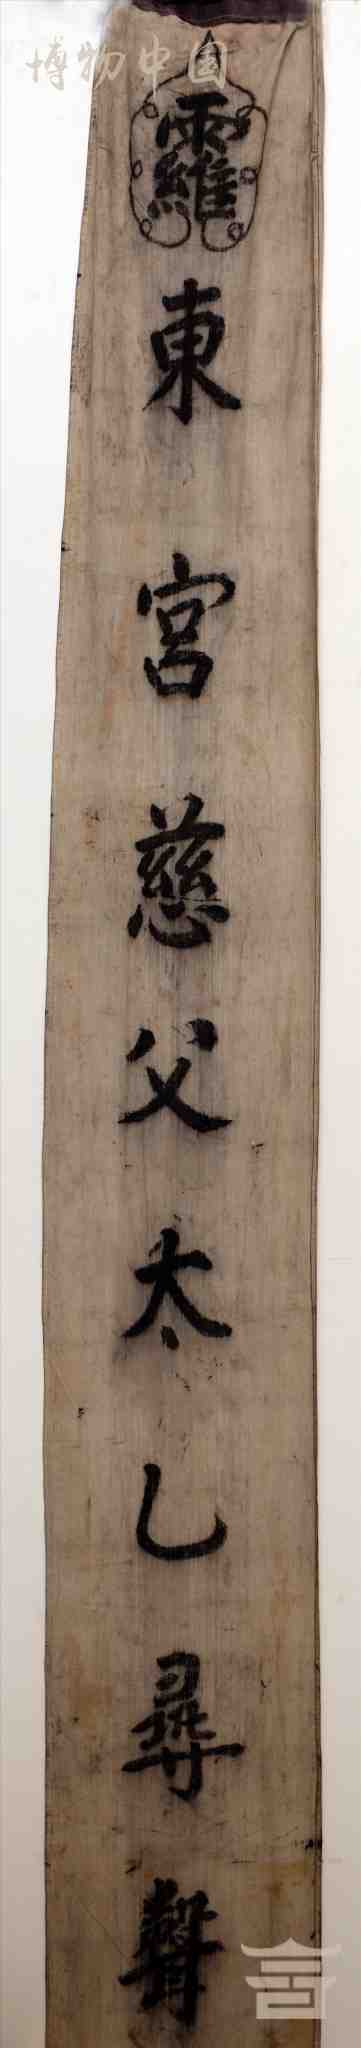 博物中国
東宮慈父太乙尋聲